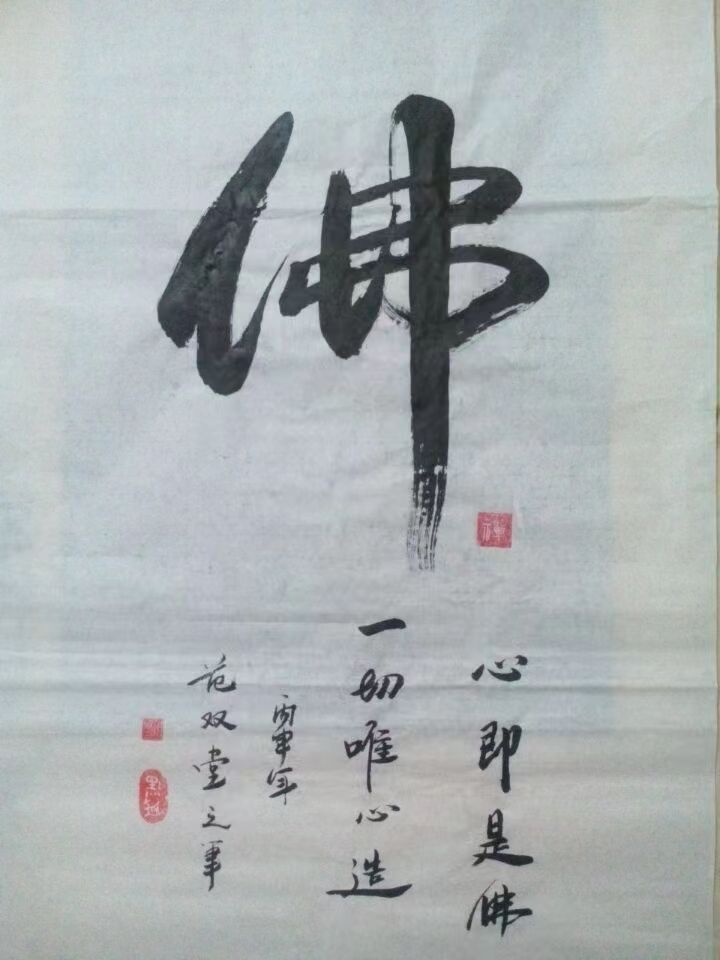 佛
禪
心即是佛
一切唯心造
丙申年
范双堂之笔